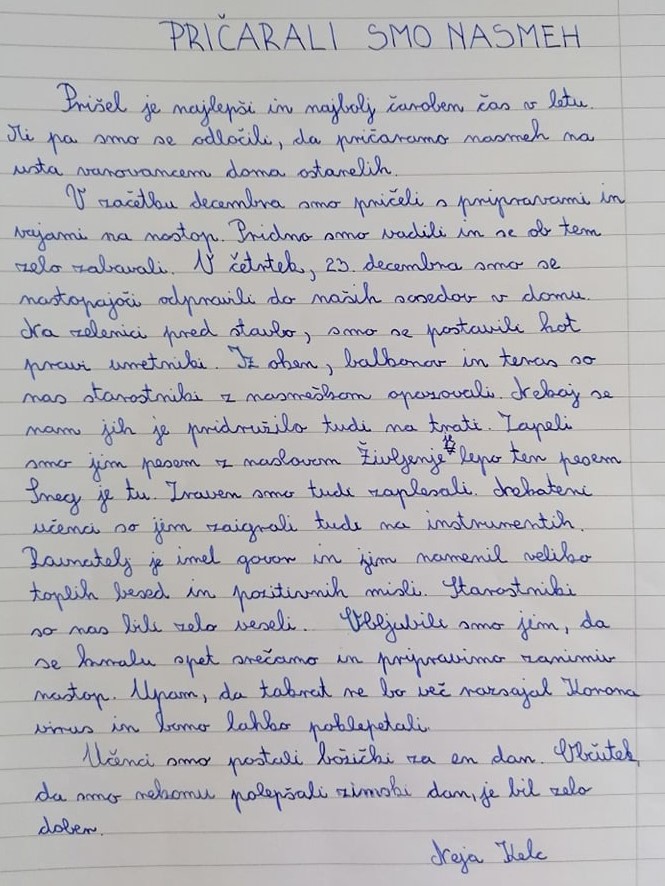 PRIČARALI SMO NASMEH
Prišel je najlepši in najbolj čaroben čas v letu.
Mi pa smo se odločili, da pričaramo nasmeh na
usta varovancem doma ostarelih.
V začetku decembra smo pričeli s pripravami in
vajami na nastop. Pridno smo vadili in se ob tem
zelo zabavali. V četrtek, 23. decembra smo se
nastopajoči odpravili do naših sosedov v domu.
Na zelenici pred stavbo, smo se postavili kot
pravi umetniki. Iz oken, balkonov in teras so
nas starostniki z nasmeškom opazovali. Nekaj se
nam jih je pridružilo tudi na trati. Zapeli
smo jim pesem z naslovom Življenje je lepo ter pesem
Sneg je tu. Zraven smo tudi zaplesali. Nekateri
učenci so jim zaigrali tudi na instrumentih.
Ravnatelj je imel govor in jim namenil veliko
toplih besed in pozitivnih misli. Starostniki
so nas bili zelo veseli. Obljubili smo jim, da
se kmalu spet srečamo in pripravimo zanimiv
nastop. Upam, da takrat ne bo več razsajal Korona
virus in bomo lahko poklepetali.
Učenci smo postali božički za en dan. Občutek,
da smo nekomu polepšali zimski dan, je bil zelo
dober.
Neja Kelc